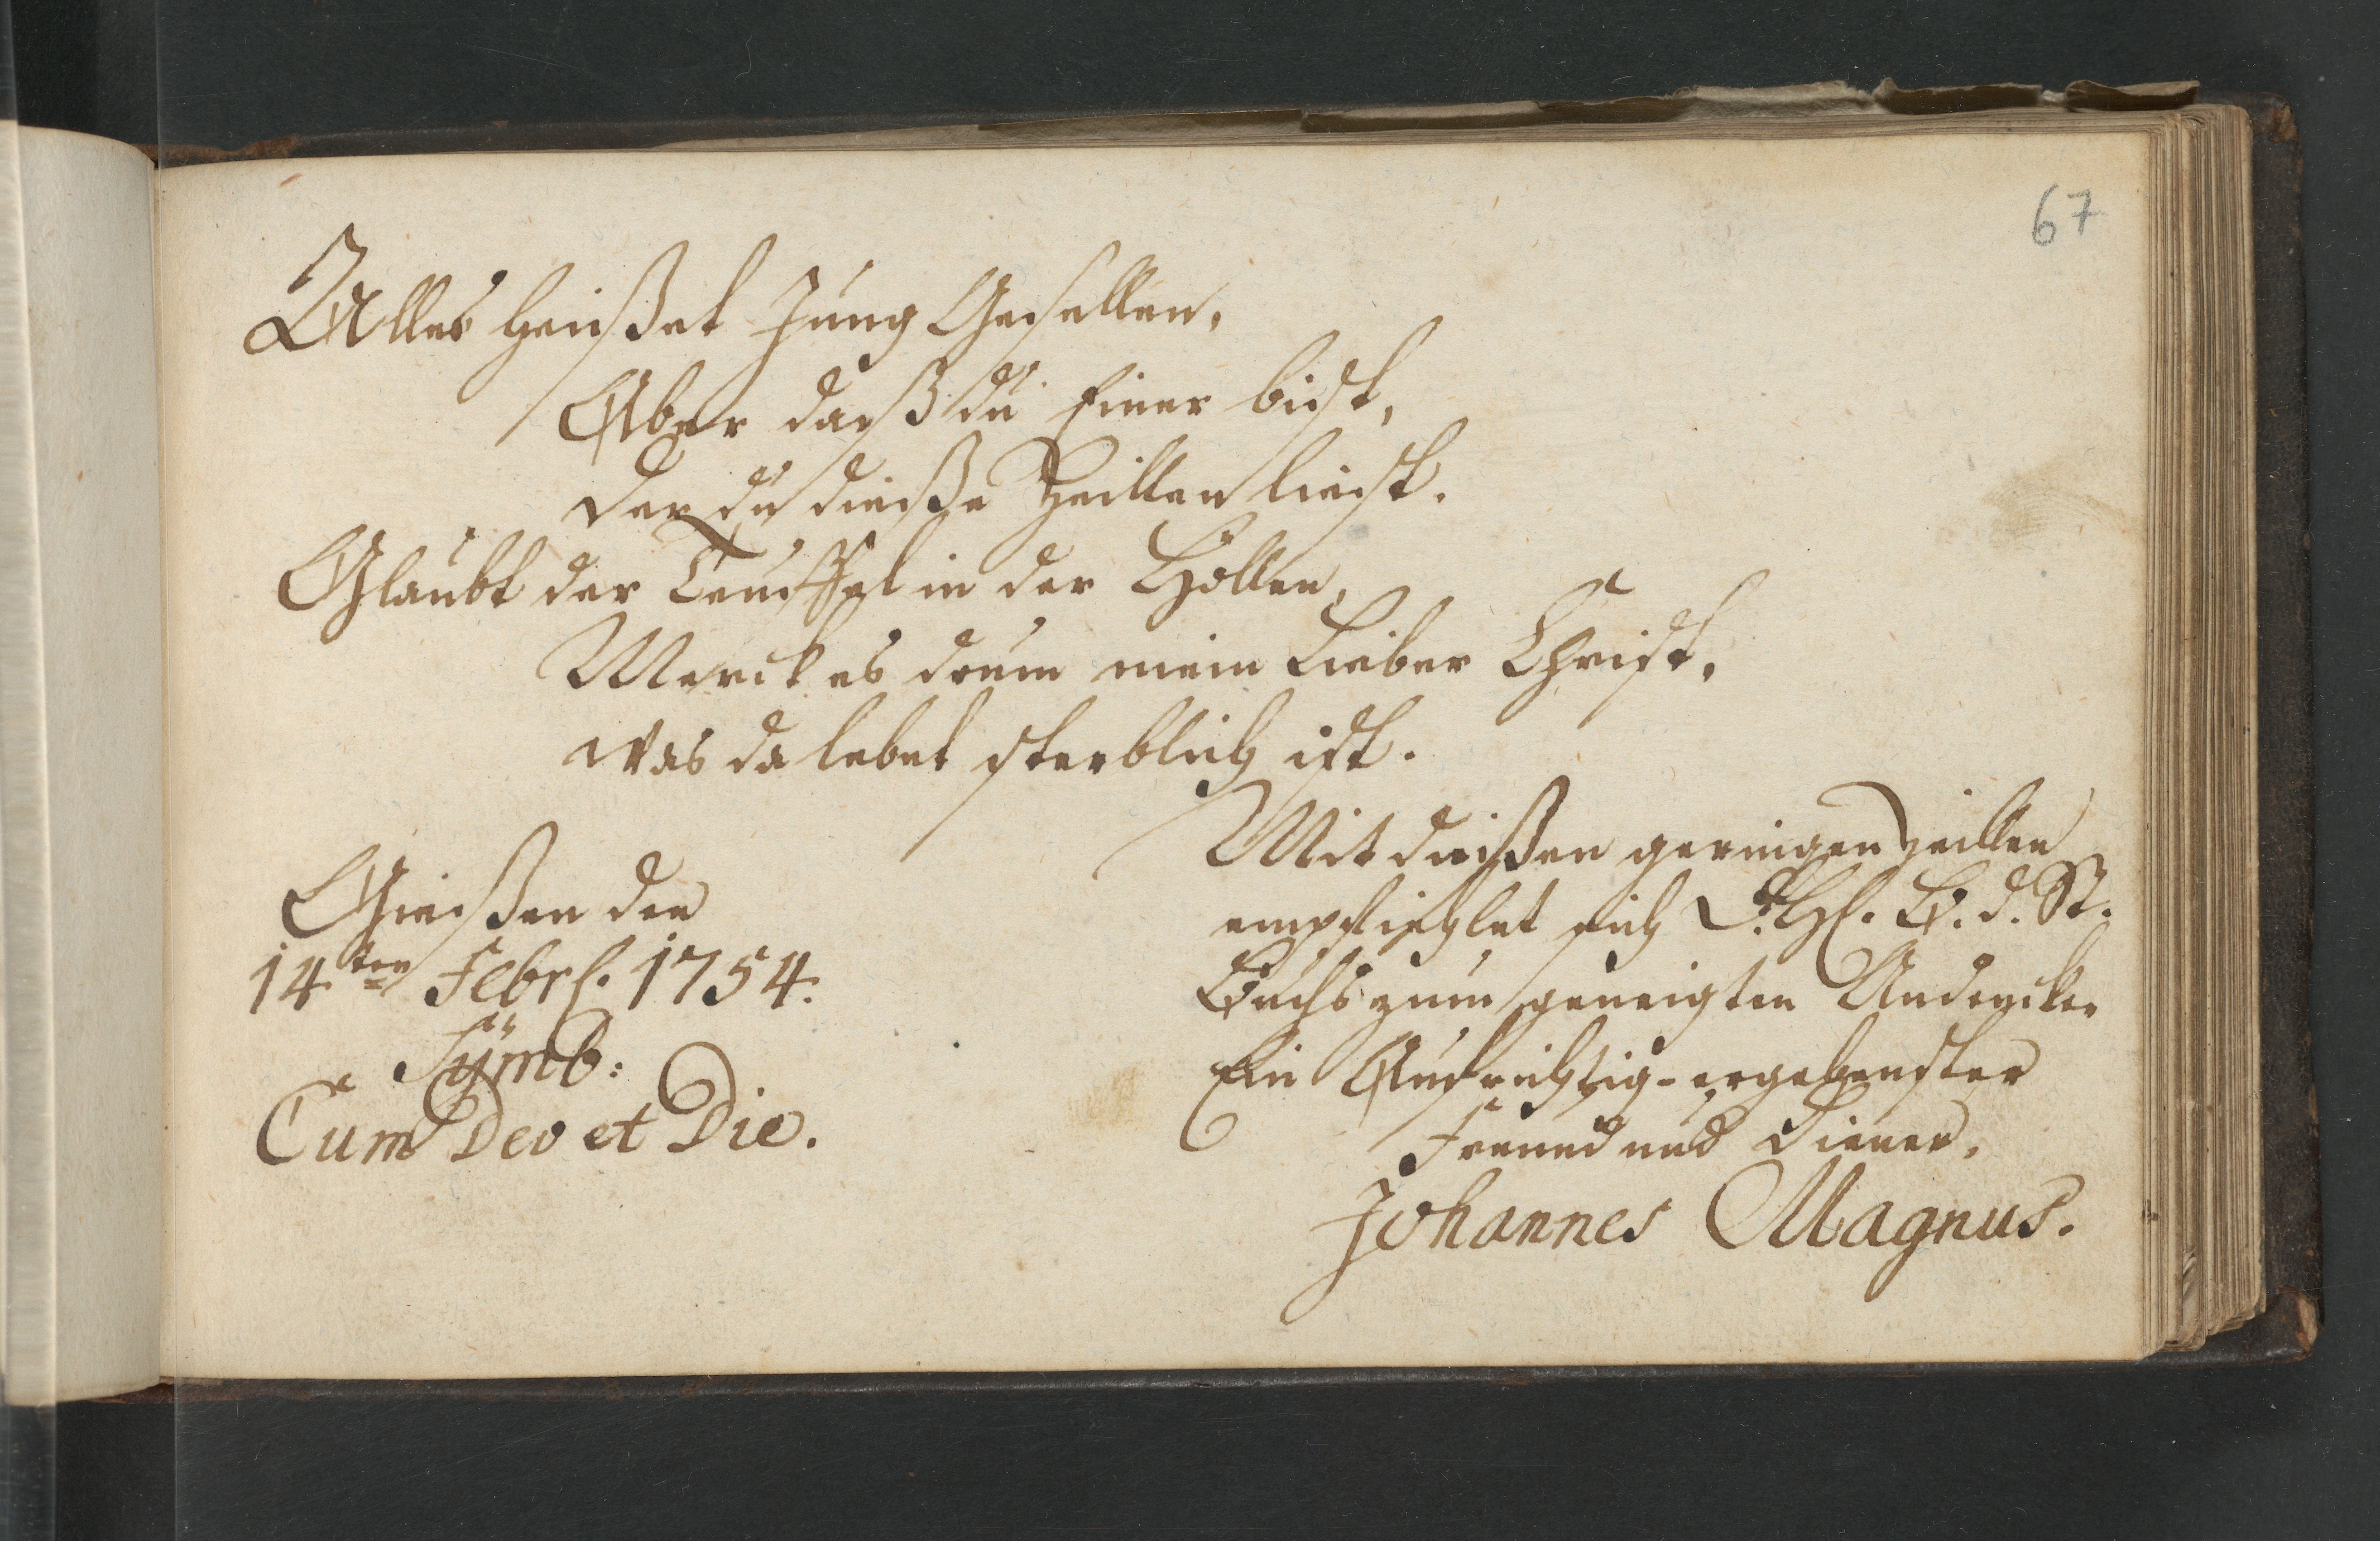 67
Alles heißet Jung Gesellen,
Aber daß du Einer bist,
der du dieße Zeillen liest.
Glaubt der Teuffel in der Höllen,
Merck es drum mein Lieber Christ,
was da lebet sterblich ist.
Gießen den
14ten Febr. 1754.
Sÿmb:
Cum Deo et Die.
Mit dießen geringen Zeillen
empfiehlet sich B. d. St.
Buchs zum geneigten Andencken
Ein Aufrichtig-ergebenster
Freund und Diener,
Johannes Magnus.